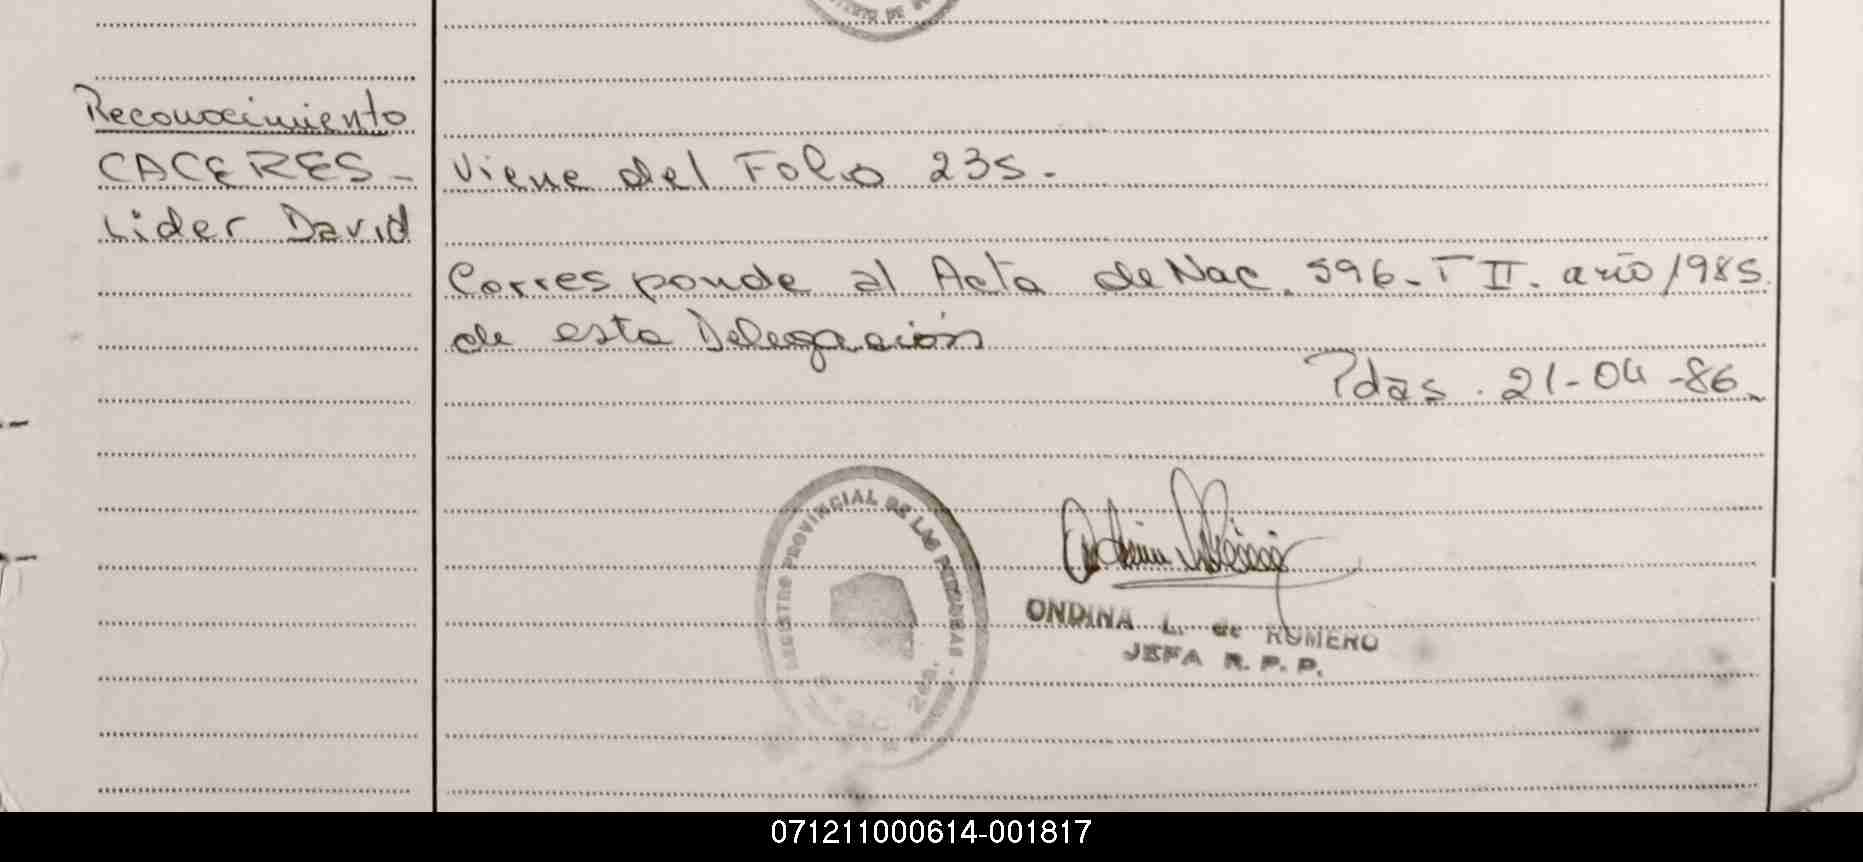 Reconocimiento
CACERES -
Lider David
Viene del Folio 235.
Corresponde al Acta de Nac. 596 - T II. año 1985.
de esta Delegación
Pdas. 21-04-86.
REGISTRO PROVINCIAL DE LAS PERSONAS
ONDINA L. de ROMERO
JEFA R. P. P.
071211000614-001817